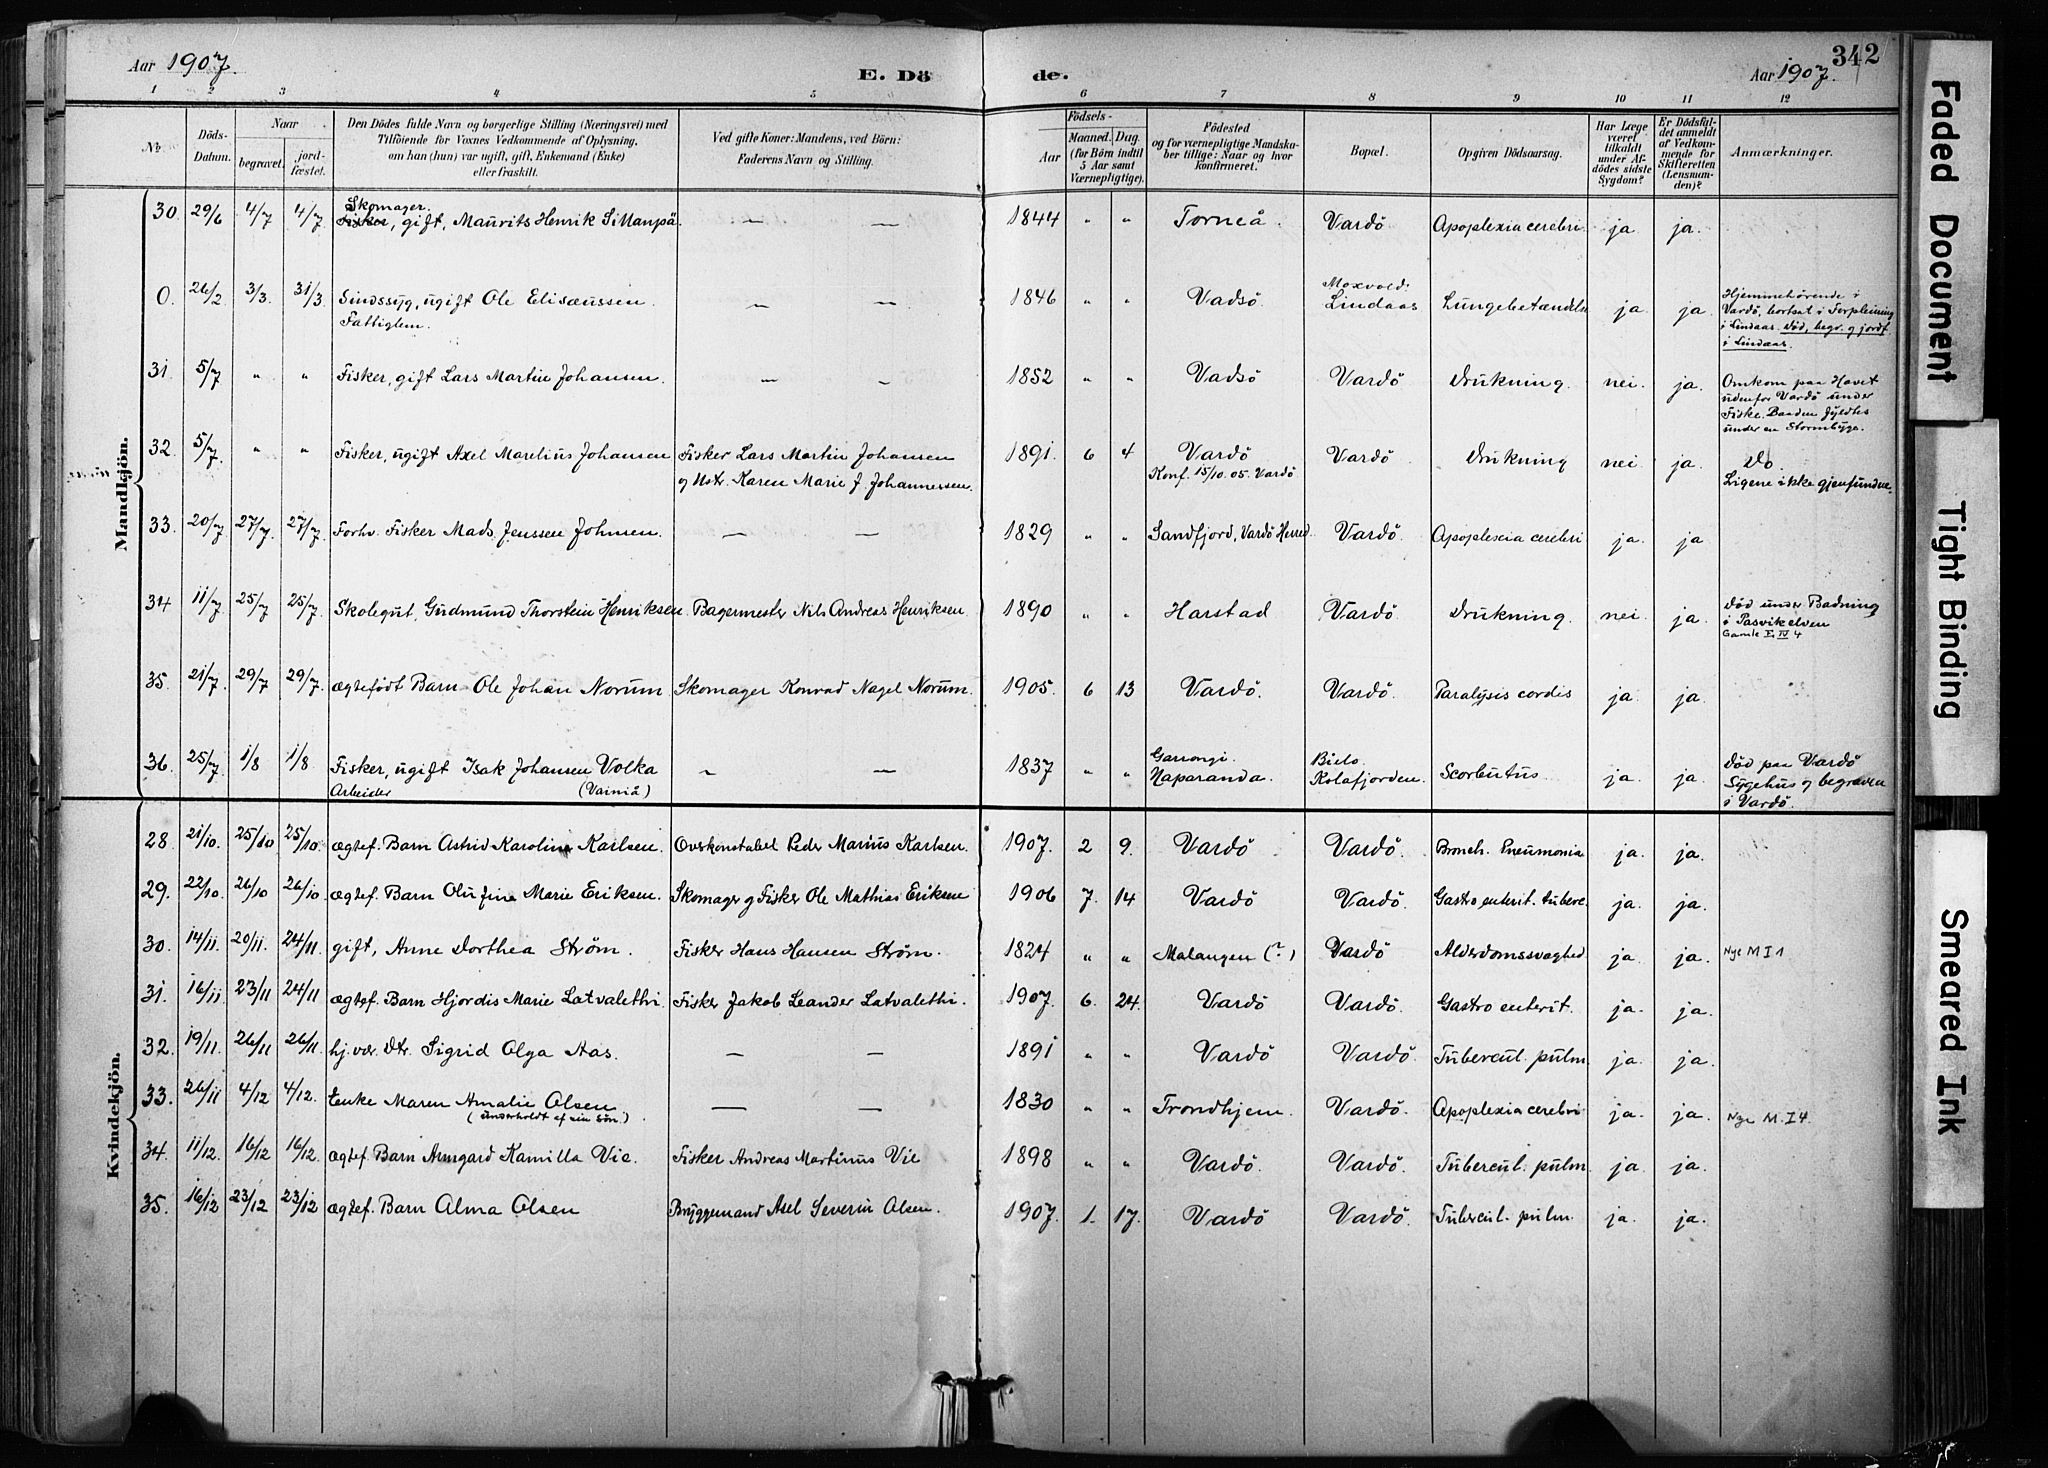 Aar 1907. E. Dö de. Aar 1907. 342
1 2 3 4 5 6 7 8 9 10 11 12
No. Döds-Datum. Naar begravet. jordfæstet. Den Dödes fulde Navn og borgerlige Stilling (Næringsvei) med Tilföiende for Voxnes Vedkommende af Oplysning, om han (hun) var ugift, gift, Enkemand (Enke) eller fraskilt. Ved gifte Koner: Mandens, ved Börn: Faderens Navn og Stilling. Födsels- Aar Maaned. Dag. (for Börn indtil 5 Aar samt Værnepligtige). Födested og for værnepligtige Mandskaber tillige: Naar og hvor konfirmeret. Bopæl. Opgiven Dödsaarsag. Har Læge været tilkaldt under Afdödes sidste Sygdom? Er Dödsfaldet anmeldt af Vedkommende for Skifteretten (Lensmanden)? Anmærkninger.
Mandkjön.
30. 29/6 4/7 4/7 Skomager. Fisker, gift, Maurits Henrik Sillanpä. — — 1844 " " Torneå. Vardö Apoplexia cerebri. ja ja.
0. 26/2 3/3. 31/3 Sindssyg, ugift Ole Elisæussen. Fattiglem. — — 1846 " " Vadsö. Moxvold. Lindaas Lungebetændelse ja ja. Hjemmehörende i Vardö, bortsat i Forpleining i Lindaas. Död, begr. og jordf. i Lindaas.
31. 5/7 " " Fisker, gift Lars Martin Johansen. — — 1852 " " Vadsö Vardö Drukning. nei. ja. Omkom paa Havet udenfor Vardö under Fiske. Baaden fyldtes under en Stormbyge.
32. 5/7. " " Fisker, ugift Axel Marelius Johansen Fisker Lars Martin Johansen og Hstr. Karen Marie J. Johannessen. 1891. 6 4 Vardö Konf. 15/10. 05. Vardö Vardö Drukning nei ja. Do. Ligene ikke gjenfundne.
33. 20/7 27/7. 27/7. Forhv. Fisker Mads Jenssen Johnsen. — — 1829 " " Sandfjord, Vardö Herred Vardö. Apoplexia cerebri ja. ja
34 11/7 25/7 25/7. Skolegut, Gudmund Thorstein Henriksen Bagermester Nils Andreas Henriksen. 1890 " " Harstad Vardö Drukning. nei. ja. Död under Badning i Pasvikelven Gamle E. IV 4
35. 21/7. 29/7 29/7. ægtefödt Barn Ole Johan Norum Skomager Konrad Nagel Norum. 1905. 6 13 Vardö. Vardö. Paralysis cordis ja ja.
36. 25/7 1/8 1/8. Fisker, ugift Isak Johansen Volka Arbeider (Vainiä) — — 1837 " " Haparanda. Kolafjorden. Scorbutus. ja ja. Död paa Vardö Sygehus og begraven i Vardö.
Kvindekjön.
28. 21/10. 25/10 25/10. ægtef. Barn Astrid Karoline Karlsen. Overkonstabel Peder Marius Karlsen. 1907. 2 9. Vardö Vardö. Bronch. Pneumonia ja. ja.
29. 22/10 26/10 26/10. ægtef. Barn Olufine Marie Eriksen. Skomager og Fisker Ole Mathias Eriksen 1906 7. 14 Vardö Vardö. Gastro enterit. tuberc. ja. ja.
30. 14/11. 20/11. 24/11 gift, Anne Dorthea Ström. Fisker Hans Hansen Ström. 1824 " " Malangen (?) Vardö Alderdomssvaghed ja. ja. Nye M I 1
31. 16/11 23/11 24/11 ægtef. Barn Hjordis Marie Latvalethi. Fisker Jakob Leander Latvalethi. 1907. 6. 24. Vardö Vardö. Gastro enterit. ja. ja.
32. 19/11. 26/11 26/11. hj.vær. Dtr. Sigrid Olga Aas. — — 1891 " " Vardö Vardö. Tubercul. pulm. ja. ja.
33. 26/11 4/12 4/12. Enke Maren Amalie Olsen (underholdt af sin sön.) — — 1830 " " Trondhjem. Vardö. Apoplexia cerebri ja. ja. Nye M. I 4.
34. 11/12. 16/12 16/12 ægtef. Barn Armgard Kamilla Vie. Fisker Andreas Martinus Vie 1898 " " Vardö. Vardö. Tubercul. pulm. ja ja.
35. 16/12 23/12 23/12 ægtef. Barn Alma Olsen Bryggemand Axel Severin Olsen. 1907. 1. 17. Vardö Vardö. Tubercul. pulm. ja. ja.
Faded Document
Tight Binding
Smeared Ink